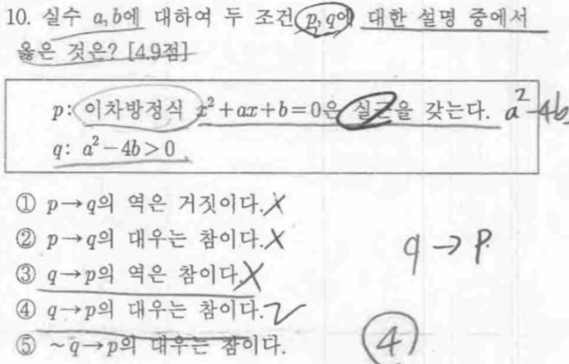 10. 실수 a, b에 대하여 두 조건 p, q에 대한 설명 중에서
옳은 것은? [4.9점]
p: 이차방정식 x²+ax+b=0은 실근을 갖는다. a²-4b
q: a²-4b>0
① p→q의 역은 거짓이다. X
② p→q의 대우는 참이다. X
③ q→p의 역은 참이다. X
④ q→p의 대우는 참이다. ✓
⑤ ~q→p의 대우는 참이다.
q → p
④